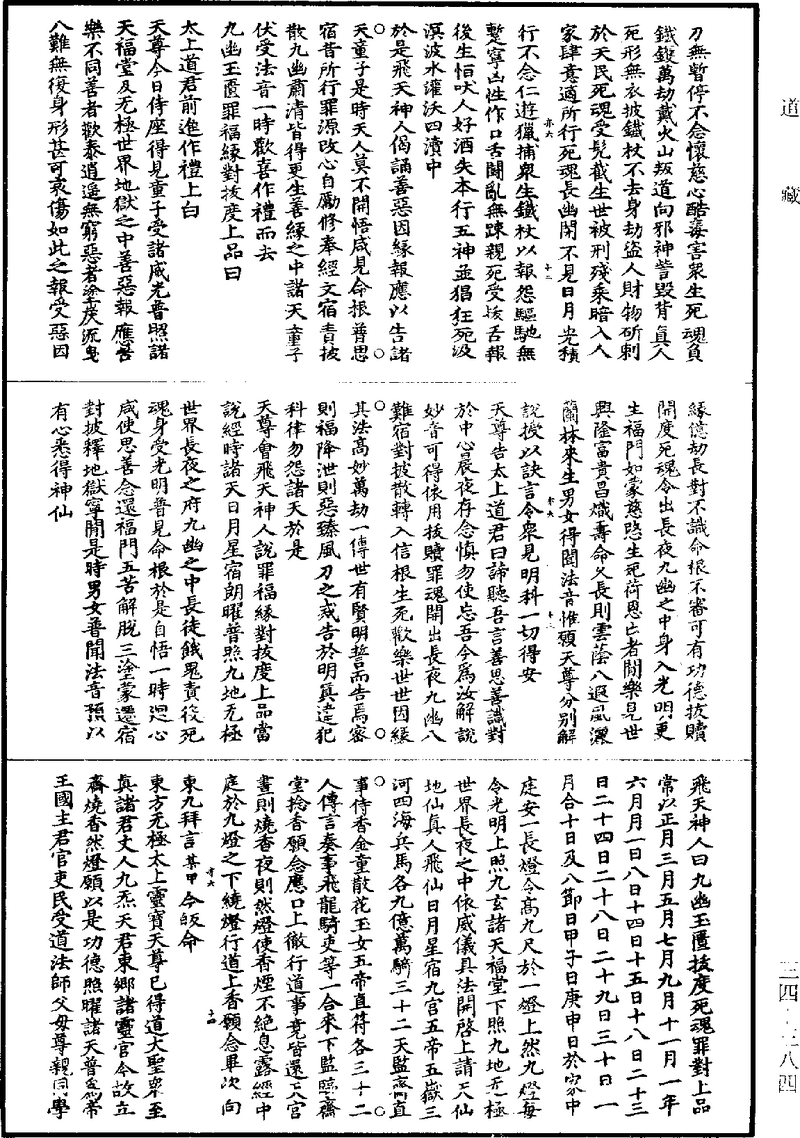 道藏
三四·三八四
刀無暫停不念懷慈心酷毒害衆生死魂負
鐵鏦萬劫戴火山叛道向邪神訾毀背真人
死形無衣披鐵杖不去身劫盜人財物斫刺
於天民死魂受髡截生世被刑殘乘暗入人
家肆意適所行死魂長幽閉不見日月光積
行不念仁遊獵捕衆生鐵杖以報怨驅馳無
蹔寧凶性作口舌鬭亂無踈親死受拔舌報
後生恒吠人好酒失本行五神並猖狂死汲
溟波水灌沃四瀆中
於是飛天神人偈誦善惡因緣報應以告諸
天童子是時天人莫不開悟咸見命根普思
宿昔所行罪源改心自勵修奉經文宿責披
散九幽肅清皆得更生善緣之中諸天童子
伏受法音一時歡喜作禮而去
九幽玉匱罪福緣對拔度上品曰
太上道君前進作禮上白
天尊今日侍座得見童子受諸威光普照諸
天福堂及无極世界地獄之中善惡報應苦
樂不同善者歡泰逍遙無窮惡者塗炭流曳
八難無復身形甚可哀傷如此之報受惡因
緣億劫長對不識命根不審可有功德拔贖
開度死魂令出長夜九幽之中身入光明更
生福門如蒙慈愍生死荷恩亡者開樂見世
興隆富貴昌熾壽命久長則雲蔭八遐風灑
蘭林來生男女得聞法音惟願天尊分別解
說授以訣言令衆見明科一切得安
天尊告太上道君曰諦聽吾言善思善識對
於中心晨夜存念慎勿使忘吾今為汝解說
妙音可得依用拔贖罪魂開出長夜九幽八
難宿對披散轉入信根生死歡樂世世因緣
其法高妙萬劫一傳世有賢明誓而告焉密
則福降泄則惡臻風刀之戒告於明真違犯
科律勿怨諸天於是
天尊會飛天神人說罪福緣對拔度上品當
說經時諸天日月星宿朗曜普照九地无極
世界長夜之府九幽之中長徒餓鬼責役死
魂身受光明普見命根於是自悟一時迴心
咸使思善念還福門五苦解脫三塗蒙還宿
對披釋地獄寧閑是時男女普聞法音預以
有心悉得神仙
飛天神人曰九幽玉匱拔度死魂罪對上品
常以正月三月五月七月九月十一月一年
六月月一日八日十四日十五日十八日二十三
日二十四日二十八日二十九日三十日一
月合十日及八節日甲子日庚申日於家中
庭安一長燈令高九尺於一燈上然九燈每
令光明上照九玄諸天福堂下照九地无極
世界長夜之中依威儀具法開啓上請天仙
地仙真人飛仙日月星宿九宮五帝五嶽三
河四海兵馬各九億萬騎三十二天監齋直
事侍香金童散花玉女五帝直符各三十二
人傳言奏事飛龍騎吏等一合來下監臨齋
堂捻香願念應口上徹行道事竟皆還天宮
晝則燒香夜則然燈使香煙不絕息露經中
庭於九燈之下繞燈行道上香願念畢次向
東九拜言某甲今皈命
東方无極太上靈寶天尊已得道大聖衆至
真諸君丈人九炁天君東鄉諸靈官今故立
齋燒香然燈願以是功德照曜諸天普為帝
王國主君官吏民受道法師父母尊親同學